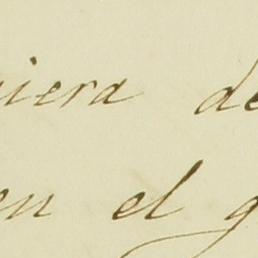 iera de
en el g